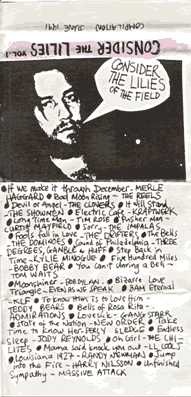 COMPILATION JUNE 1991
CONSIDER THE LILIES VOL.1
CONSIDER
THE LILIES
OF THE FIELD
• If we make it through December - MERLE
HAGGARD • Bad Moon Rising - THE REELS
• Devil or Angel - THE CLOVERS • It Will Stand
- THE SHOWMEN • Electric Cafe - KRAFTWERK
• Long Time Man - TIM ROSE • Pusher Man -
CURTIS MAYFIELD • Sorry - THE IMPALAS
• Fools fall in Love - THE DRIFTERS • The Bells
- THE DOMINOES • Sound of Philadelphia - THREE
DEGREES, GAMBLE & HUFF • Step Back in
Time - KYLIE MINOGUE • Five Hundred Miles
- BOBBY BEAR • You Can't Unring a Bell -
TOM WAITS
• Moonshiner - BOB DYLAN • Bizarre Love
Triangle - EVEN AS WE SPEAK • 3AM Eternal
- KLF • To Know Him is to Love Him -
TEDDY BEARS • Bells of Rosa Rita -
ADMIRATIONS • Lovesick - GANG STARR
• State of the Nation - NEW ORDER • Take
Time to Know Her - PERCY SLEDGE • Endless
Sleep - JODY REYNOLDS • Oh Girl - THE CHI-
LITES • Mama said knock you out - LL COOL J
• Louisiana 1927 - RANDY NEWMAN • Jump
into the Fire - HARRY NILSSON • Unfinished
Sympathy - MASSIVE ATTACK